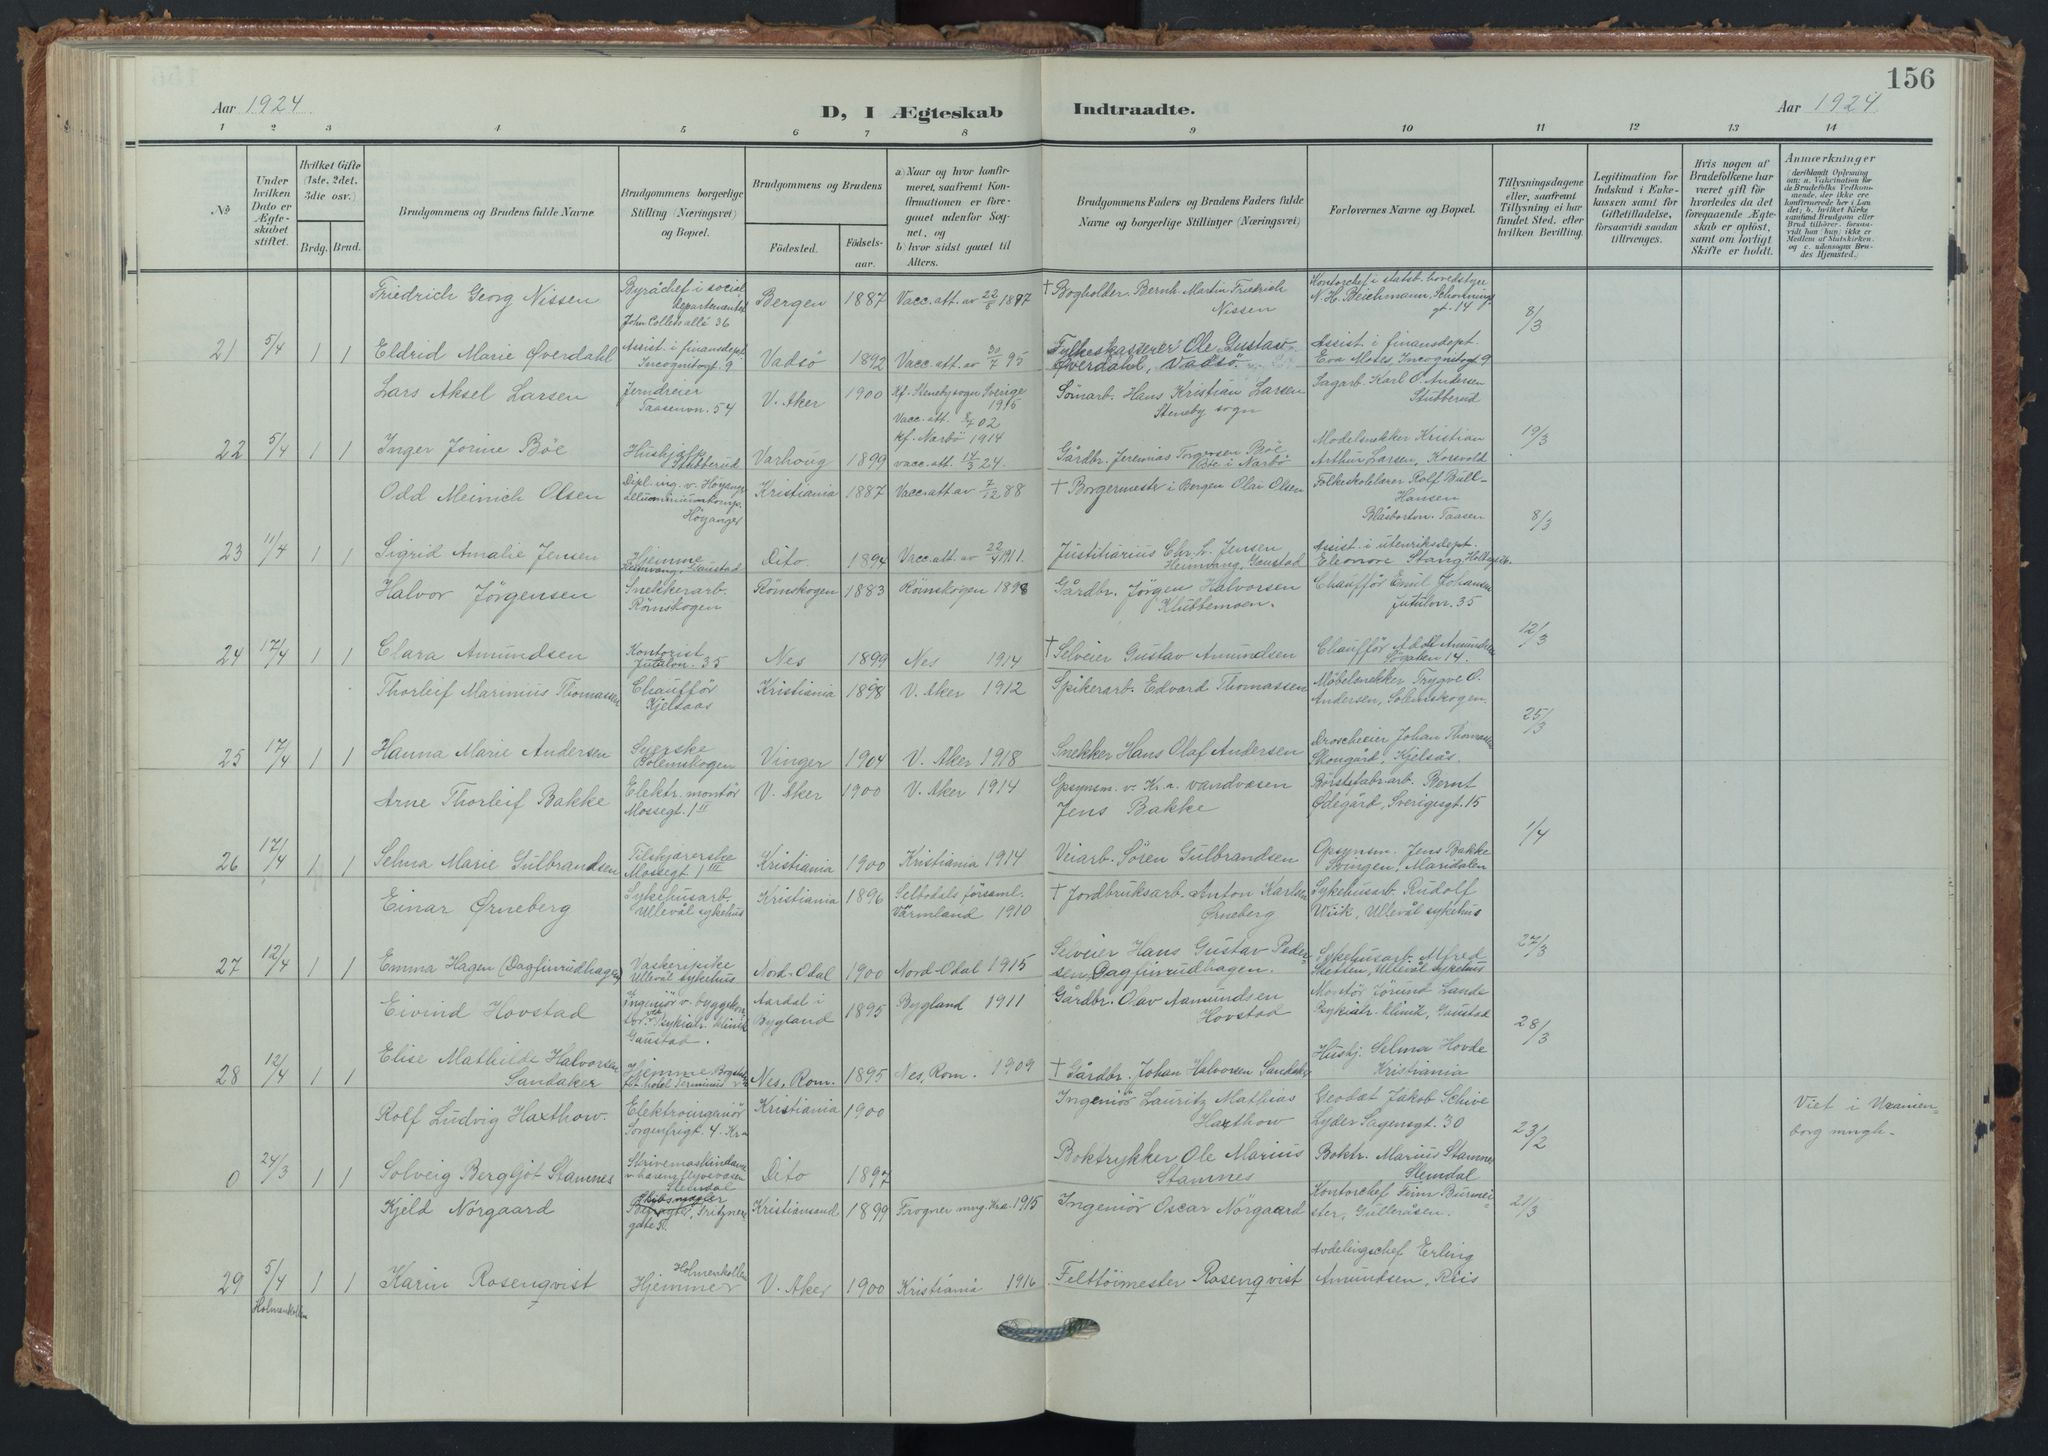 156
Aar 1924
D, I Ægteskab Indtraadte.
Aar 1924
1 2 3 4 5 6 7 8 9 10 11 12 13 14
No
Under hvilken Dato er Ægteskabet stiftet.
Hvilket Gifte (1ste, 2det, 3die osv.)
Brdg. Brud.
Brudgommens og Brudens fulde Navne
Brudgommens borgerlige Stilling (Næringsvei) og Bopæl.
Brudgommens og Brudens
Fødested. Fødselsaar.
a) Naar og hvor konfirmeret, saafremt Konfirmationen er foregaaet udenfor Sognet, og
b) hvor sidst gaael til Alters.
Brudgommens Faders og Brudens Faders fulde Navne og borgerlige Stillinger (Næringsvei)
Forlovernes Navne og Bopæl.
Tillysningsdagene eller, saafremt Tillysning ei har fundet Sted, efter hvilken Bevilling.
Legitimation for Indskud i Enkekassen samt for Giftetilladelse, forsaavidt saadan tiltrænges.
Hvis nogen af Brudefolkene har været gift før hvorledes da det foregaaende Ægteskab er opløst, samt om lovligt Skifte er holdt.
Anmerkninger
(deriblandt Oplysning om: a. Vakcination for de Brudefolks Vedkommende, der ikke ere konfirmerede her i Landet; b. hvilket Kirkesamfund Brudgom eller Brud tilhører, forsaavidt han (hun) ikke er Medlem af Statskirken, og c. udensogns Brudes Hjemsted.)
Friedrich Georg Nissen
Byråchef i social departementet
John Collets allé 36
Bergen 1887 Vacc.att. av 22/8 1887
† Bogholder Bernh. Martin Friedrich Nissen
Kontorchef i statsb. hovedstyr N. H. Beichmann, Schønningsgt. 14
8/3
21 5/4 1 1 Eldrid Marie Øverdahl
Assist i finansdept. Incognitogt. 9
Vadsö 1892 Vacc.att. 30/7 95
Fylkeskasserer Ole Gustav Øverdahl, Vadsö.
Assist i finansdept. Eva Motes, Incognitogt 9
Lars Aksel Larsen
Jerndreier Taasenvn. 54
V. Aker 1900 Kf. Steneby sogn Sverige 1915
Sömarb. Hans Kristian Larsen Steneby sogn
Sagarb. Karl O. Andersen Stubberud
Vacc.att. 02
19/3
22 5/4 1 1 Inger Jorine Böe
Hushjelp Stubberud
Varhoug 1899 Kf. Narbö 1914 vacc.att. 14/3 24.
Gårdbr. Jeremias Torgersen Böe Böe i Narbö
Modelsnekker Kristian Arthur Larsen, Korsvold
Odd Meinich Olsen
Dipl. ing. v. Höyanger Alluminiumkomp. Höyanger
Kristiania 1887 Vacc.att av 7/12 88
† Borgermestr i Bergen Olai Olsen
Folkeskolelærer Rolf Bull-Hansen
Blåsborton. Taasen
8/3
23 11/4 1 1 Sigrid Amalie Jensen
Hjemme Heimvang, Gaustad
Dito. 1894 Vacc.att. av 22/4 1911.
Justitiarius Chr. L. Jensen Heimvang, Gaustad
Assist. i utenriksdept. Eleonore Stang
Halvor Jörgensen
Snekkerarb. Römskogen
Römskogen 1883 Römskogen 1898
Gårdbr. Jörgen Halvorsen Klubbemoen.
Chaufför Emil Johansen Jutulvn. 35
12/3
24 17/4 1 1 Clara Amundsen
Kontorist Jutulvn. 35
Nes 1899 Nes 1914
† Selveier Gustav Amundsen
Chaufför Adolf Amundsen Sögaten 14.
Thorleif Marinius Thomassen
Chaufför Kjelsaas
Kristiania 1898 V. Aker 1912
Spikerarb. Edvard Thomassen
Möbelsnekker Trygve O. Andersen, Solemskogen.
25/3
25 17/4 1 1 Hanna Marie Andersen
Syerske Solemskogen
Vinger 1904 V. Aker 1918
Snekker Hans Olaf Andersen
Droscheeier Johan Thomassen Skougård, Kjelsås.
Arne Thorleif Bakke
Elektr. montör Mossegt. 1 II
V. Aker 1900 V. Aker 1914
Opsynsm. v. Kr.a. vandvæsen Jens Bakke
Börstefabr.arb. Bernt Ödegård, Sverigesgt. 15
1/4
26 17/4 1 1 Selma Marie Gulbrandsen
Tilskjærerske Mossegt 1 III
Kristiania 1900 Kristiania 1914
Veiarb. Sören Gulbrandsen
Opsynsm. Jens Bakke Svingen, Maridalen
Einar Örneberg
Sykehusarb. Ullevål sykehus
Kristiania 1896 Selbodals församl. Värmland 1910
† Jordbruksarb. Anton Karlsen Örneberg
Sykehusarb. Rudolf Wiik, Ullevål sykehus
27/3
27 12/4 1 1 Emma Hagen (Dagfinrudhagen)
Vaskeripike Ullevål sykehus
Nord-Odal 1900 Nord-Odal 1915
Selveier Hans Gustav Pedersen Dagfinrudhagen.
Sykehusarb. Alfred Sletsen, Ullevål sykehus
Eivind Hovstad
Ingeniör v. byggekontor ved Psykiatr. klinik Gaustad.
Aardal i Bygland 1895 Bygland 1911
Gårdbr. Olav Aamundsen Hovstad
Montör Jörund Lande Psykiatr. klinik, Gaustad
28/3
28 12/4 1 1 Elise Mathilde Halvorsen Sandaker
Hjemme
Nes, Rom. 1895 Nes, Rom. 1909
† Gårdbr. Johan Halvorsen Sandaker
Hushj. Selma Hovde Kristiania
Rolf Ludvig Haxthow.
Elektroingeniör Sorgenfrigt. 4. Kra
Kristiania 1900
Ingeniör Lauritz Mathias Haxthow
Geodæt Jakob Schive Lyder Sagensgt. 30
23/2
Viet i Uranienborg mngh.
0 24/3 1 1 Solveig Bergljot Stamnes
Skrivemaskindame v. hærens flyvevæsen Slemdal
Dito 1897
Boktrykker Ole Marius Stamnes
Boktr. Marius Stamnes Slemdal
Kjeld Nörgaard
Skibsmægler, Fritznersgate
Kristiansand 1899 Frogner mng. Kra. 1915
Ingeniör Oscar Nörgaard
Kontorchef Finn Burmeister, Gulleråsen.
21/3
29 5/4 1 1 Karin Rosenqvist
Holmenkollen
Hjemme Holmenkollen
V. Aker 1900 Kristiania 1916
Felttöimester Rosenqvist
Avdelingschef Erling Amundsen, Riis